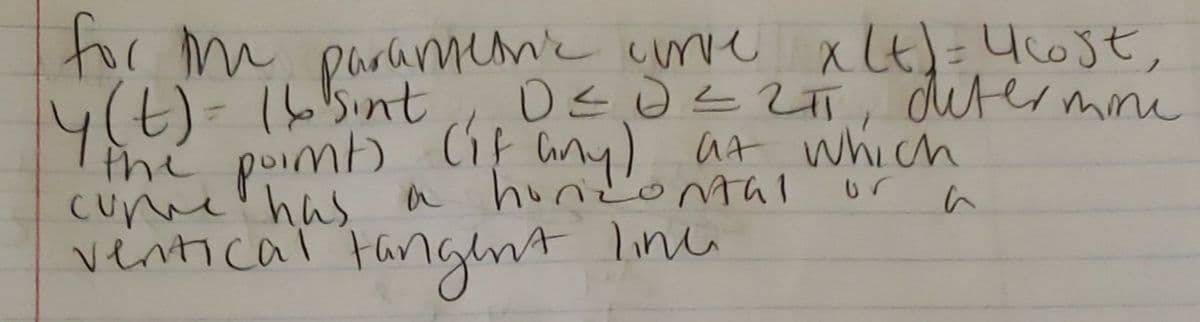 for the parametric curve x(t)=4cost,
y(t)= 16sint, 0≤θ≤2π, determine
the points (if any) at which
curve has a horizontal or a
vertical tangent line